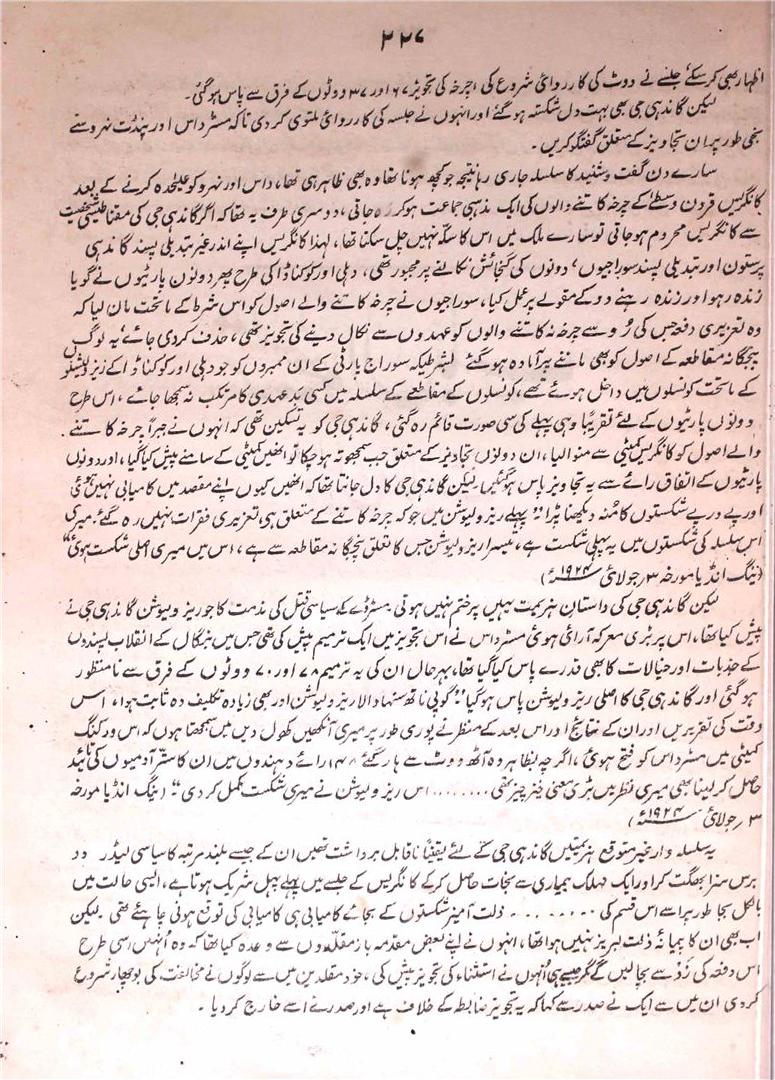 ۲۲۷
اظہار بھی کر سکے‘ جلسے نے ووٹ کی کارروائی شروع کی، چرخہ کی تجویز ۶۷ اور ۳۷ ووٹوں کے فرق سے پاس ہوگئی۔
لیکن گاندھی جی بھی بہت دل شکستہ ہوگئے اور انہوں نے جلسہ کی کارروائی ملتوی کردی تاکہ مسٹر داس اور پنڈت نہرو سے
نجی طور پر ان تجاویز کے متعلق گفتگو کریں۔
سارے دن گفت و شنید کا سلسلہ جاری رہا نتیجہ جو کچھ ہونا تھا وہ بھی ظاہر ہی تھا، داس اور نہرو کو علیٰحدہ کرنے کے بعد
کانگریس قرون وسطےٰ کے چرخہ کاتنے والوں کی ایک مذہبی جماعت ہو کر رہ جاتی، دوسری طرف یہ تھا کہ اگر گاندھی جی کی مقناطیسی شخصیت
سے کانگریس محروم ہو جاتی تو سارے ملک میں اس کا سکّہ نہیں چل سکتا تھا، لہٰذا کانگریس اپنے اندر غیر تبدیلی پسند گاندھی
پرستوں اور تبدیلی پسند سوراجیوں‘ دونوں کی گنجائش نکالنے پر مجبور تھی، دہلی اور کوکناڈا کی طرح پھر دونوں پارٹیوں نے گویا
زندہ رہو اور زندہ رہنے دو کے مقولے پر عمل کیا، سوراجیوں نے چرخہ کاتنے والے اصول کو اس شرط کے ماتحت مان لیا کہ
وہ تعزیری دفعہ جس کی رُو سے چرخہ نہ کاتنے والوں کو عہدوں سے نکال دینے کی تجویز تھی، حذف کردی جائے‘ یہ لوگ
پنچگانہ مقاطعہ کے اصول کو بھی ماننے پر آمادہ ہوگئے بشرطیکہ سوراج پارٹی کے ان ممبروں کو جو دہلی اور کوکناڈا کے زیزولیشنو
کے ماتحت کونسلوں میں داخل ہوئے تھے، کونسلوں کے مقاطعے کے سلسلہ میں کسی بد عہدی کا مرتکب نہ سمجھا جائے، اس طرح
دونوں پارٹیوں کے لئے تقریبًا وہی پہلے کی سی صورت قائم رہ گئی، گاندھی جی کو یہ تسکین تھی کہ انہوں نے جبراً چرخہ کاتنے
والے اصول کو کانگریس کمیٹی سے منوا لیا، ان دونوں تجاویز کے متعلق جب سمجھوتہ ہو چکا تو انھیں کمیٹی کے سامنے پیش کیا گیا، اور دونوں
پارٹیوں کے اتفاق رائے سے یہ تجاویز پاس ہوگئیں۔ لیکن گاندھی جی کا دل جانتا تھا کہ انھیں کیوں اپنے مقصد میں کامیابی نہیں ہوئی
اور پے در پے شکستوں کا مُنہ دیکھنا پڑا ”پہلے ریزولیوشن میں جو کہ چرخہ کاتنے کے متعلق ہی، تعزیری فقرات نہیں رہ گئے۔ میری
اس سلسلہ کی شکستوں میں یہ پہلی شکست ہے، تیسرا ریزولیوشن جس کا تعلق پنچگانہ مقاطعہ سے ہے، اس میں میری اصلی شکست ہوئی“
(ینگ انڈیا مورخہ ۳؍ جولائی ۱۹۲۴ء)
لیکن گاندھی جی کی داستانِ ہزیمت یہیں پر ختم نہیں ہوتی۔ مسٹر ڈے کے سیاسی قتل کی مذمت کا جو ریزولیوشن گاندھی جی نے
پیش کیا تھا، اس پر بڑی معرکہ آرائی ہوئی مسٹر داس نے اس تجویز میں ایک ترمیم پیش کی تھی جس میں بنگال کے انقلاب پسندوں
کے جذبات اور خیالات کا بھی قدرے پاس کیا گیا تھا، بہرحال ان کی یہ ترمیم ۷۸ اور ۷۰ ووٹوں کے فرق سے نامنظور
ہوگئی اور گاندھی جی کا اصلی ریزولیوشن پاس ہوگیا ”گوپی ناتھ سنہا والا ریزولیوشن اور بھی زیادہ تکلیف دہ ثابت ہوا، اس
وقت کی تقریریں اور ان کے نتائج اور اس بعد کے منظر نے پوری طور پر میری آنکھیں کھول دیں میں سمجھتا ہوں کہ اس ورکنگ
کمیٹی میں مسٹر داس کو فتح ہوئی، اگرچہ بظاہر وہ آٹھ ووٹ سے ہار گئے‘ ۱۴۸ رائے دہندوں میں ان کا ستّر آدمیوں کی تائید
حاصل کر لینا بھی میری نظر میں بڑی معنی خیز چیز تھی ........ اس ریزولیوشن نے میری شکست مکمل کردی“ (ینگ انڈیا مورخہ
۳؍ جولائی ۱۹۲۴ء)
یہ سلسلہ وار غیر متوقع ہزیمتیں گاندھی جی کے لئے یقینًا ناقابل برداشت تھیں ان کے جیسے بلند مرتبہ کا سیاسی لیڈر دو
برس سزا بھگت کر اور ایک مہلک بیماری سے نجات حاصل کرکے کانگریس کے جلسے میں پہلے پہل شریک ہوتا ہے، ایسی حالت میں
بالکل بجا طور پر اسے اس قسم کی ......... ذلت آمیز شکستوں کے بجائے کامیابی ہی کامیابی کی توقع ہونی چاہئے تھی۔ لیکن
اب بھی ان کا پیمانہ ذلت لبریز نہیں ہوا تھا، انہوں نے اپنے بعض مقدمہ باز مقلّدوں سے وعدہ کیا تھا کہ وہ اُنہیں اسی طرح
اس دفعہ کی زَد سے بچا لیں گے مگر جیسے ہی اُنہوں نے استثناء کی تجویز پیش کی، خود مقلدین میں سے لوگوں نے مخالفت کی بوچھار شروع
کردی ان میں سے ایک نے صدر سے کہا کہ یہ تجویز ضابطہ کے خلاف ہے اور صدر نے اسے خارج کردیا۔